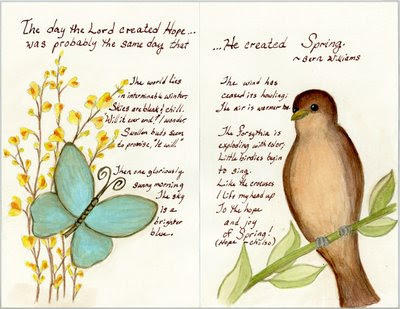 The day the Lord created Hope...
was probably the same day that
...He created Spring.
~Bern Williams
The world lies
in interminable winter;
Skies are bleak & chill.
Will it ever end? I wonder.
Swollen buds seem
to promise, "It will"
Then one gloriously
sunny morning
The sky
is a
brighter
blue.
The wind has
ceased its howling;
The air is warmer too.
The Forsythia is
exploding with color;
Little birdies begin
to sing.
Like the crocuses
I lift my head up
To the hope
and joy
of Spring!
(Hope ~